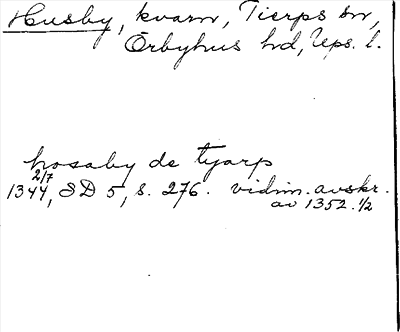 Husby, kvarn, Tierps sn,
Örbyhus hd, Ups. l.
hosaby de tyarp
2/7
1344, SD 5, s. 276. vidim. avskr.
av 1352 1/2